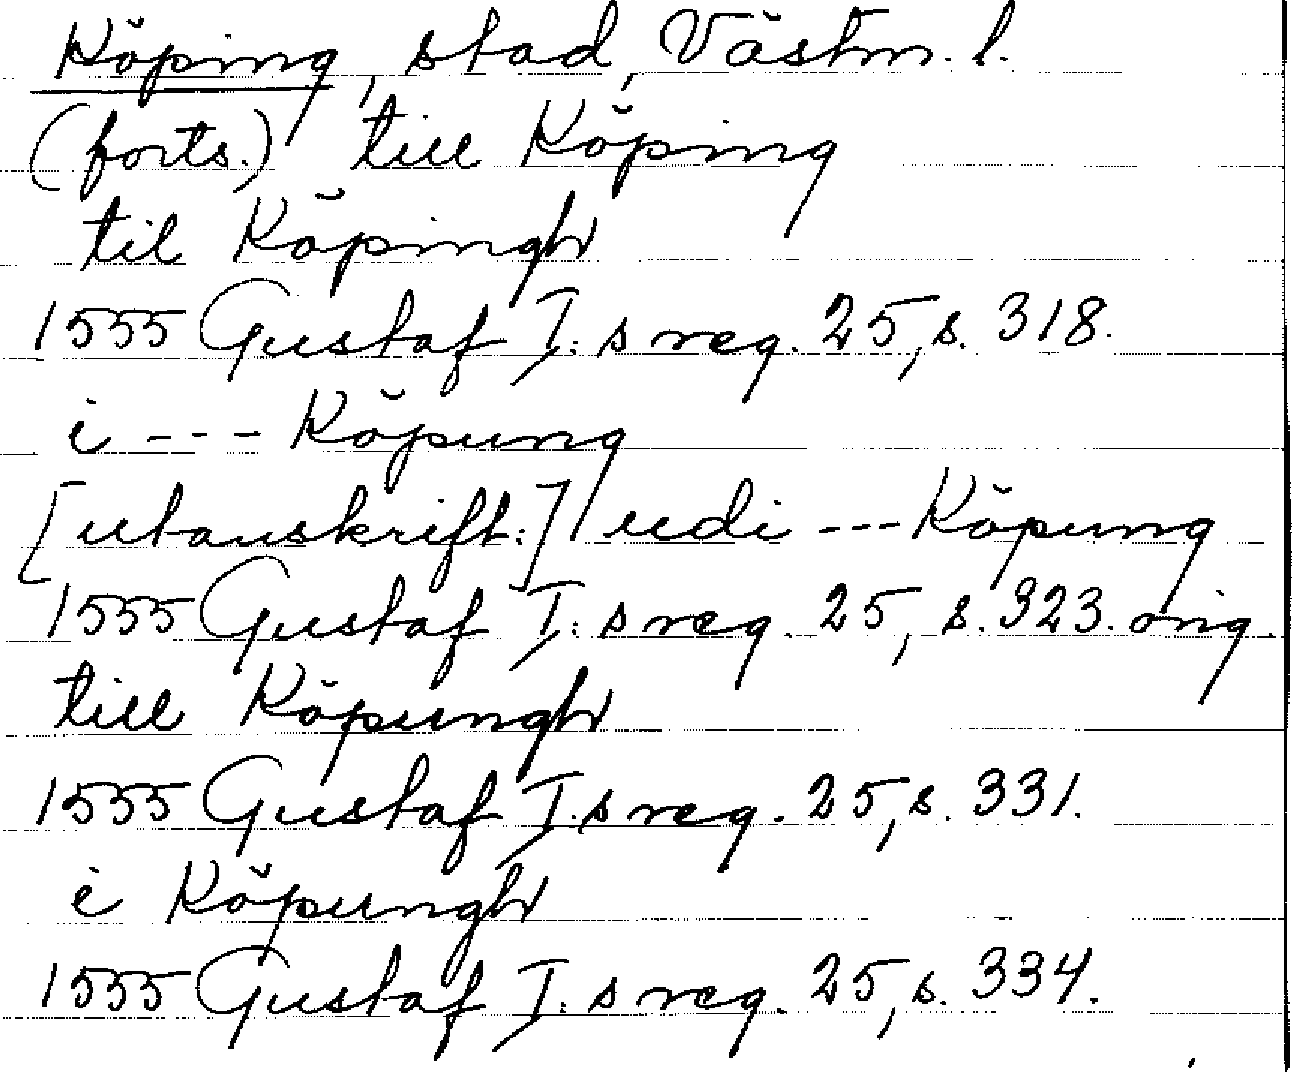 Köping, stad, Västm. l.
(forts.) till Köping
til Köpingh
1555 Gustaf I:s reg. 25, s. 318.
i --- Köpung
[utanskrift:] udi --- Köpung
1555 Gustaf I:s reg. 25, s. 323. orig.
till Köpungh
1555 Gustaf I:s reg. 25, s. 331.
i Köpungh
1555 Gustaf I:s reg. 25, s. 334.